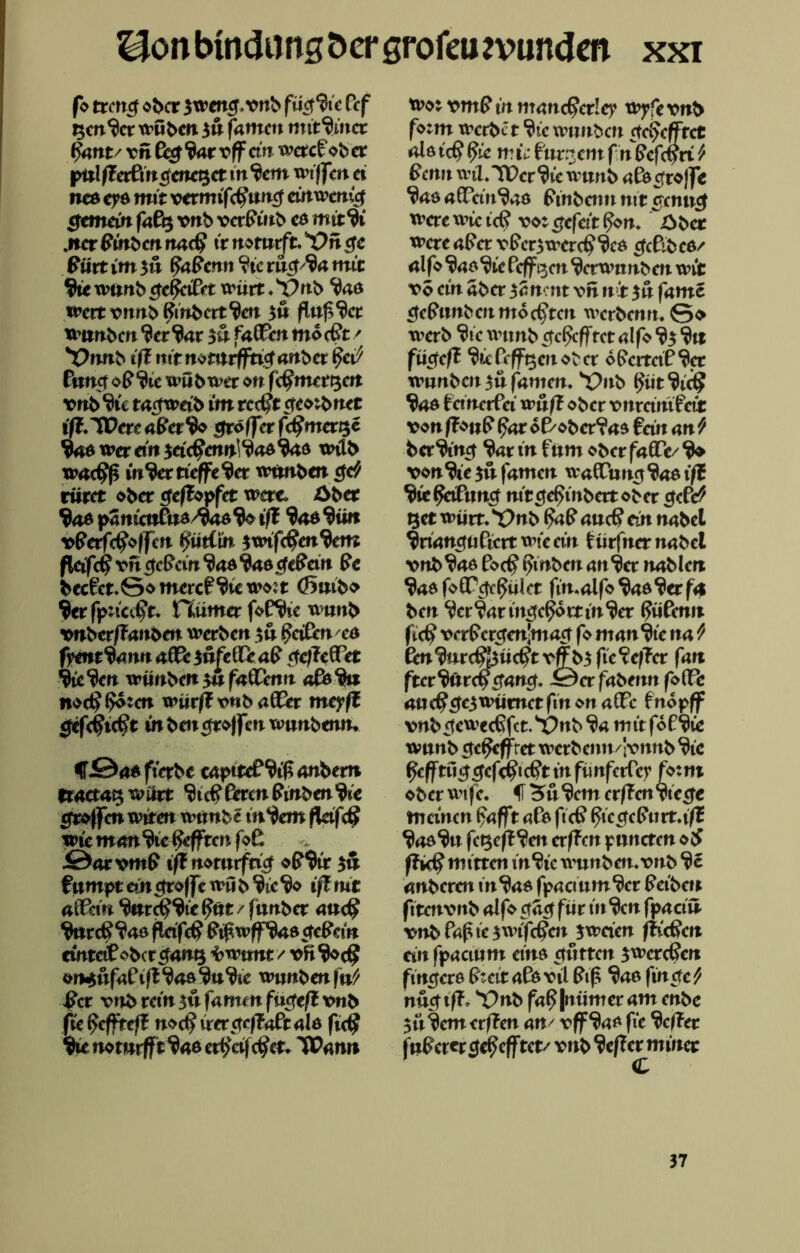 Von bindung der grosen wunden XXI
so treng ober zweng. vnd füg die lef
tzen der wüden zů samen mit diner
hant/ vñ leg dar vff ein werck ober
puluerlin genetzet in dem wissen ei
nes eys mit vermischung ein wenig
gemein saltz vnd verbind es mit di
ner binden nach ir noturft. Vñ ge
bürt im zů habenn die rüg/da mit
die wund geheilet würt. Vnd das
wert vnnd hindert den zů fluß der
wunden der dar zů fallen möcht/
Vnnd ist nit noturfftig ander hei/
lung ob die wüd wer on schmertzen
vnd die tagweid im recht geordnet
ist. Were aber do grosser schmertze
das wer ein zeichenn das das wild
wachß in der tieffe der wunden ge/
rüret ober gestopfet were. Ober
das paniculus/das do ist das dün
vberschossen hütlin zwischen dem
fleisch vñ gebein das das gebein be
decket. So merck die wort Guido
der spricht. Nümer sol die wund
vnderstanden werden zů heilen/es
syent dann alle zůfelle ab gestellet
die den wünden zů fallenn als du
noch hören würst vnd aller meyst
geschicht in den grossen wundenn.
¶ Das fierde capitel diß andern
tractatz würt dich leren binden die
grossen witen wunde in dem fleisch
wie man die hefften sol.
Dar vmb ist noturftig ob dir zů
kumpt ein grosse wüd die do ist nit
allein durch die hut/ sunder auch
durch das fleisch biß vff das gebein
einteil ober gantz wunt/ vñ doch
on zůfal ist das du die wunden su/
ber vnd rein zů samen fügest vnd
sie hefftest noch irer gestalt als sich
die noturfft das erheischet. Wann
wor vmb in mancherley wyse vnd
form werdet die wunden gehefftet
als ich hie mit kurtzem fñ beschri/
benn wil. Wer die wund als grosse
das allein das bindenn nit genug
were wie ich vor geseit hon. Ober
were aber vberzwerch des gelides/
also das die lefftzen der wunden wit
vō ein ader zanent vñ nit zů same
gebunden möchten werdenn. So
werd die wund geheftet also dz du
fügest die lefftzen ober oberteil der
wunden zů samen. Vnd hüt dich
das keinerlei wüst ober vnreinikeit
von stoub har öl/ober das kein an/
der ding dar in kum ober falle/do
von die zů samen wallung das ist
die heilung nit gehindert ober gele/
tzet würt. Vnd hab auch ein nadel
driangulirt wie ein kürsner nadel
vnd das loch hinden an der nadlen
das sol gehület sin. also das der fa
den der dar in gehört in der hülenn
sich verbergen mag so man die na/
len durch zücht vff dz sie dester fan
ster durch gang. Der fadenn solle
auch gezwürnet sin on alle knöpff
vnd gewechset. Vnd da mit sol die
wund geheftet werdenn/vnnd die
hefftüg geschicht in fünferley form
ober wise. ¶ Zů dem ersten die ge
meinen hafft als sich hie geburt. ist
das du setzest den ersten puncten ob
stich mitten in die wunden. vnd de
anderen in das spacium der beiden
siten vnd also gäg für in den spaciū
vnd laß ie zwischen zweien stichen
ein spacium eins gutten zwerchen
fingers breit als vil biß das sin ge/
nüg ist. Vnd faß nümer am ende
zů dem ersten an/ vff das sie dester
suberer geheftet/ vnd dester miner
C
37